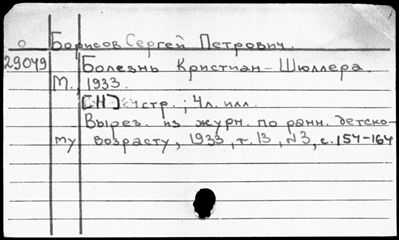 о Борисов Сергей Петрович.
29049 Болезнь Кристиан-Шюллера.
М., 1933.
[11] стр.; 4 л. илл.
Вырез. из журн. по ранн. детско-
му возрасту, 1933, т. 13, №3, с. 154-164